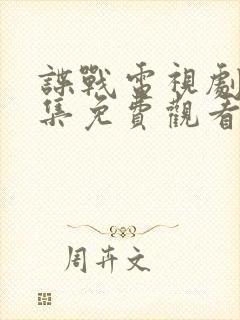 諜戰電視劇
集免費觀看
周卉文